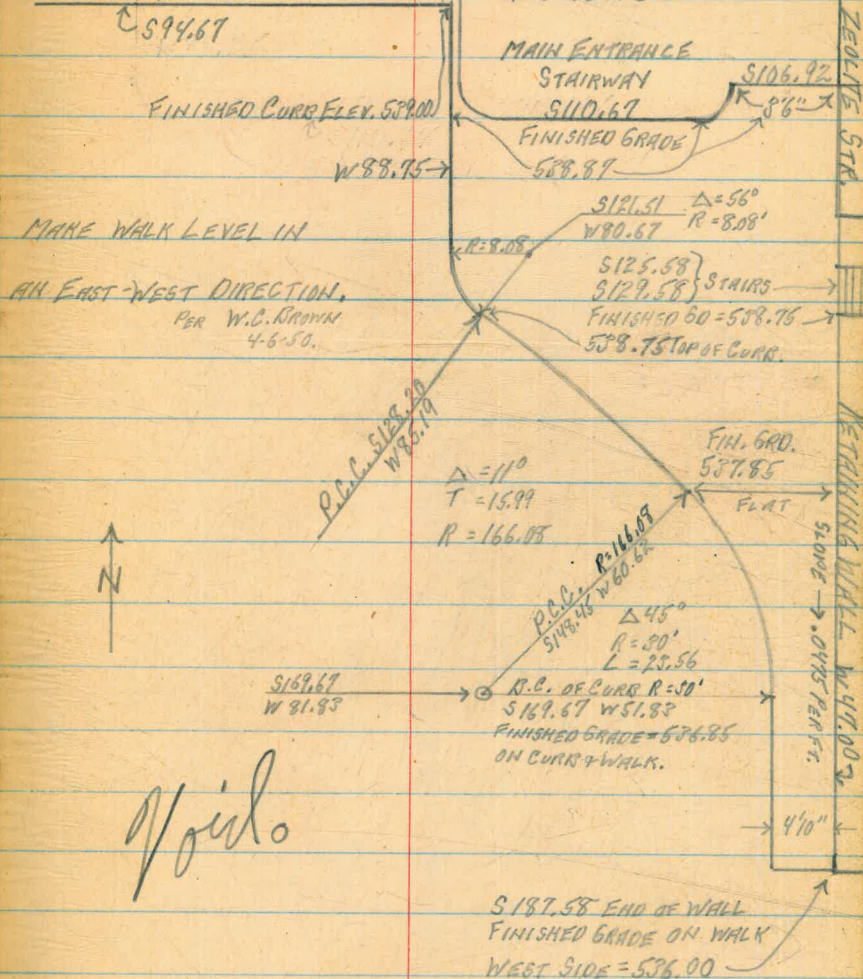 S94.67
MAIN ENTRANCE
STAIRWAY
S106.92
S110.67
8'6"
FINISHED CURB ELEV. 539.00
FINISHED GRADE
538.87
W88.75
ZEOLITE STR.
S121.51
W80.67
Δ=56°
R=8.08'
MAKE WALK LEVEL IN
AN EAST-WEST DIRECTION.
PER W.C. BROWN
4-6-50.
R=8.08
S125.58
S129.58
STAIRS
FINISHED GD=538.75
538.75 TOP OF CURB.
P.C.C. S128.20
W85.19
Δ=11°
T=15.99
R=166.08
FIN. GRD.
537.85
FLAT
RETAINING WALL W47.00
SLOPE → .0475 PER FT.
N
P.C.C. R=166.08
S148.45 W60.62
Δ45°
R=30'
L=23.56
S169.67
W81.83
B.C. OF CURB R=30'
S169.67 W51.83
FINISHED GRADE=536.85
ON CURB & WALK.
Void.
4'10"
S187.58 END OF WALL
FINISHED GRADE ON WALK
WEST SIDE=536.00